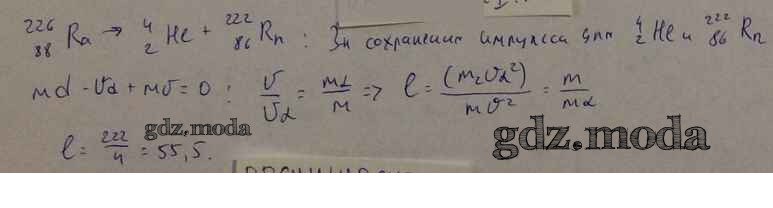 ²²⁶₈₈Ra → ⁴₂He + ²²²₈₆Rn : Зн сохранение импульса для ⁴₂He и ²²²₈₆Rn
mα · υα + mυ = 0 ; υ/υα = mα/m => l = (m₂υα²)/mυ² = m/mα
l = 222/4 = 55,5.
gdz.moda
gdz.moda